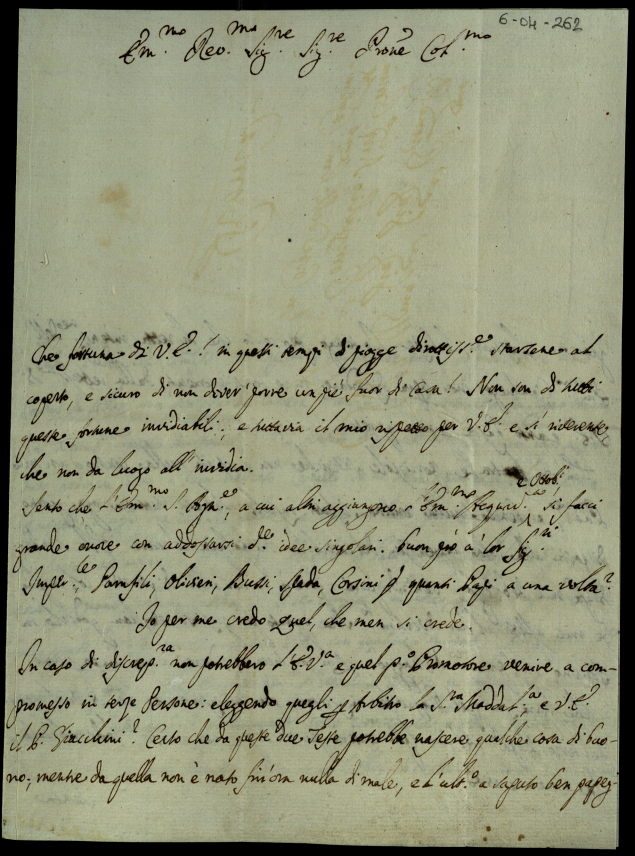 6-04-262
Em.mo Rev.mo Sig.re Sig.re Prone Col.mo
Che fortuna di V.E.! in questi tempi di piogge dirottiss.e starsene al
coperto, e sicuro di non dover porre un piè fuor di casa! Non son di tutti
queste fortune invidiabili, e tuttavia il mio rispetto per V.E. e sì riverente,
che non da luogo all'invidia.
Sento che l'Em.mo S. , a cui altri aggiungono l'Em.mo Acquav.a e Ottob.i si facci
grande onore con addossarsi d.le idee singolari. buon giò à lor Sig.ri
Imper.le, Panfili, Olivieri, Bussi, Spada, Corsini quanti Papi a una volta?
Io per me credo quel, che men si crede.
In caso di discrep.za non potrebbero l'E.V.a e quel p.o Promotore venire a com-
promesso in terze Persone: eleggendo quegli p Arbitro la S.ra Maddal.a e V.E.
il P. Giacchini? Certo che da queste due Teste potrebbe nascere qualche cosa di buo-
no; mentre da quella non è nato fin'ora nulla di male, e l'ult.o a saputo ben